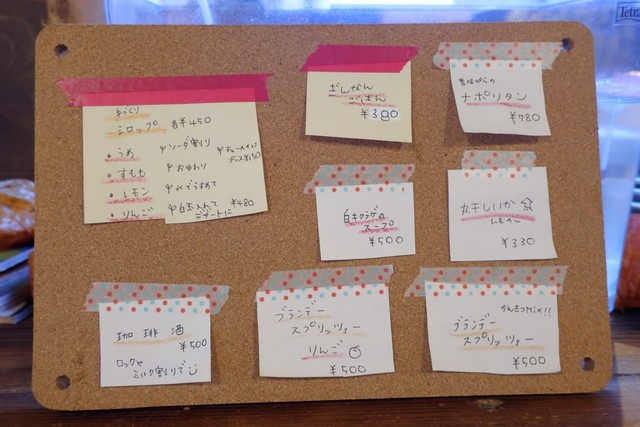 手づくり
シロップ 各¥450
・うめ
・すもも
・レモン
・りんご
ソーダ割り
お湯わり
水でうすめて
白玉入れて
デザートに
¥480
ぎんなん
ごはん
¥380
昔ながらの
ナポリタン
¥780
白キクラゲの
スープ
¥500
丸干しいか
¥330
珈琲酒
¥500
ロックや
ミルク割りで
ブランデー
スプリッツァー
りんご
¥500
かんきつMix!!
ブランデー
スプリッツァー
¥500
Tetra